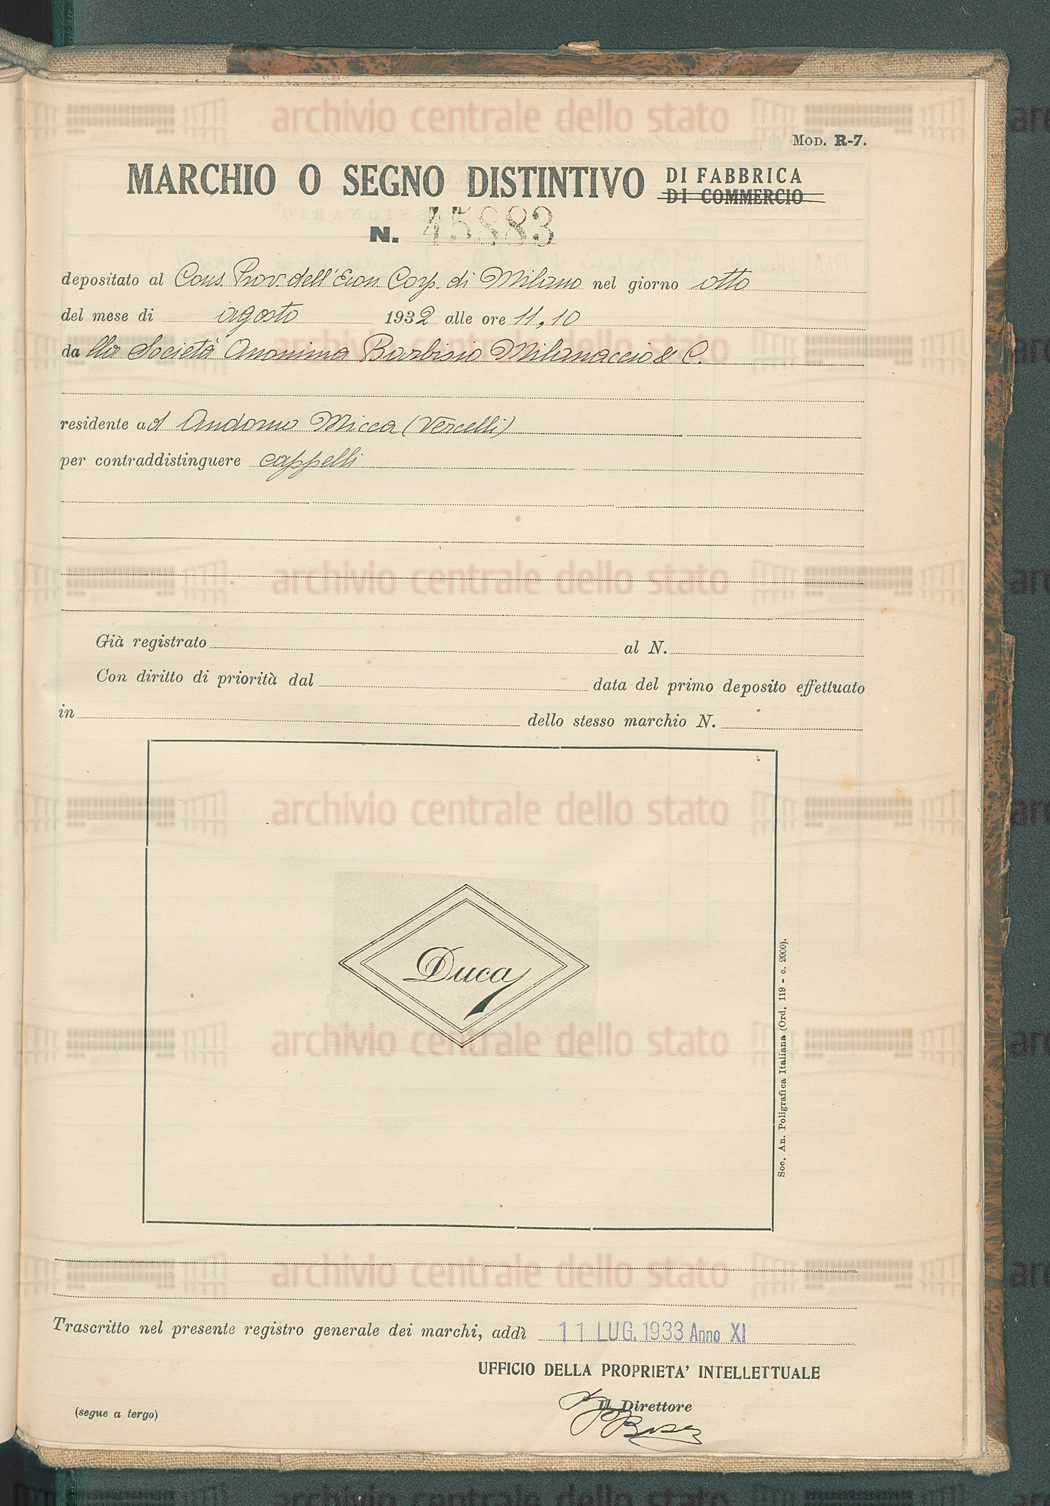 archivio centrale dello stato
MOD. R-7.
MARCHIO O SEGNO DISTINTIVO DI FABBRICA
DI COMMERCIO
N. 45883
depositato al Cons. Prov. dell'Econ. Corp. di Milano nel giorno otto
del mese di agosto 1932 alle ore 11,10
da lla Società Anonima Barbisio Milanaccio & C.
residente ad Andorno Micca (Vercelli)
per contraddistinguere cappelli
archivio centrale dello stato
Già registrato al N.
Con diritto di priorità dal data del primo deposito effettuato
in dello stesso marchio N.
archivio centrale dello stato
Duca
archivio centrale dello stato
Soc. An. Poligrafica Italiana (Ord. 119 - c. 2000).
archivio centrale dello stato
Trascritto nel presente registro generale dei marchi, addì 11 LUG. 1933 Anno XI
UFFICIO DELLA PROPRIETA' INTELLETTUALE
Il Direttore
(segue a tergo)